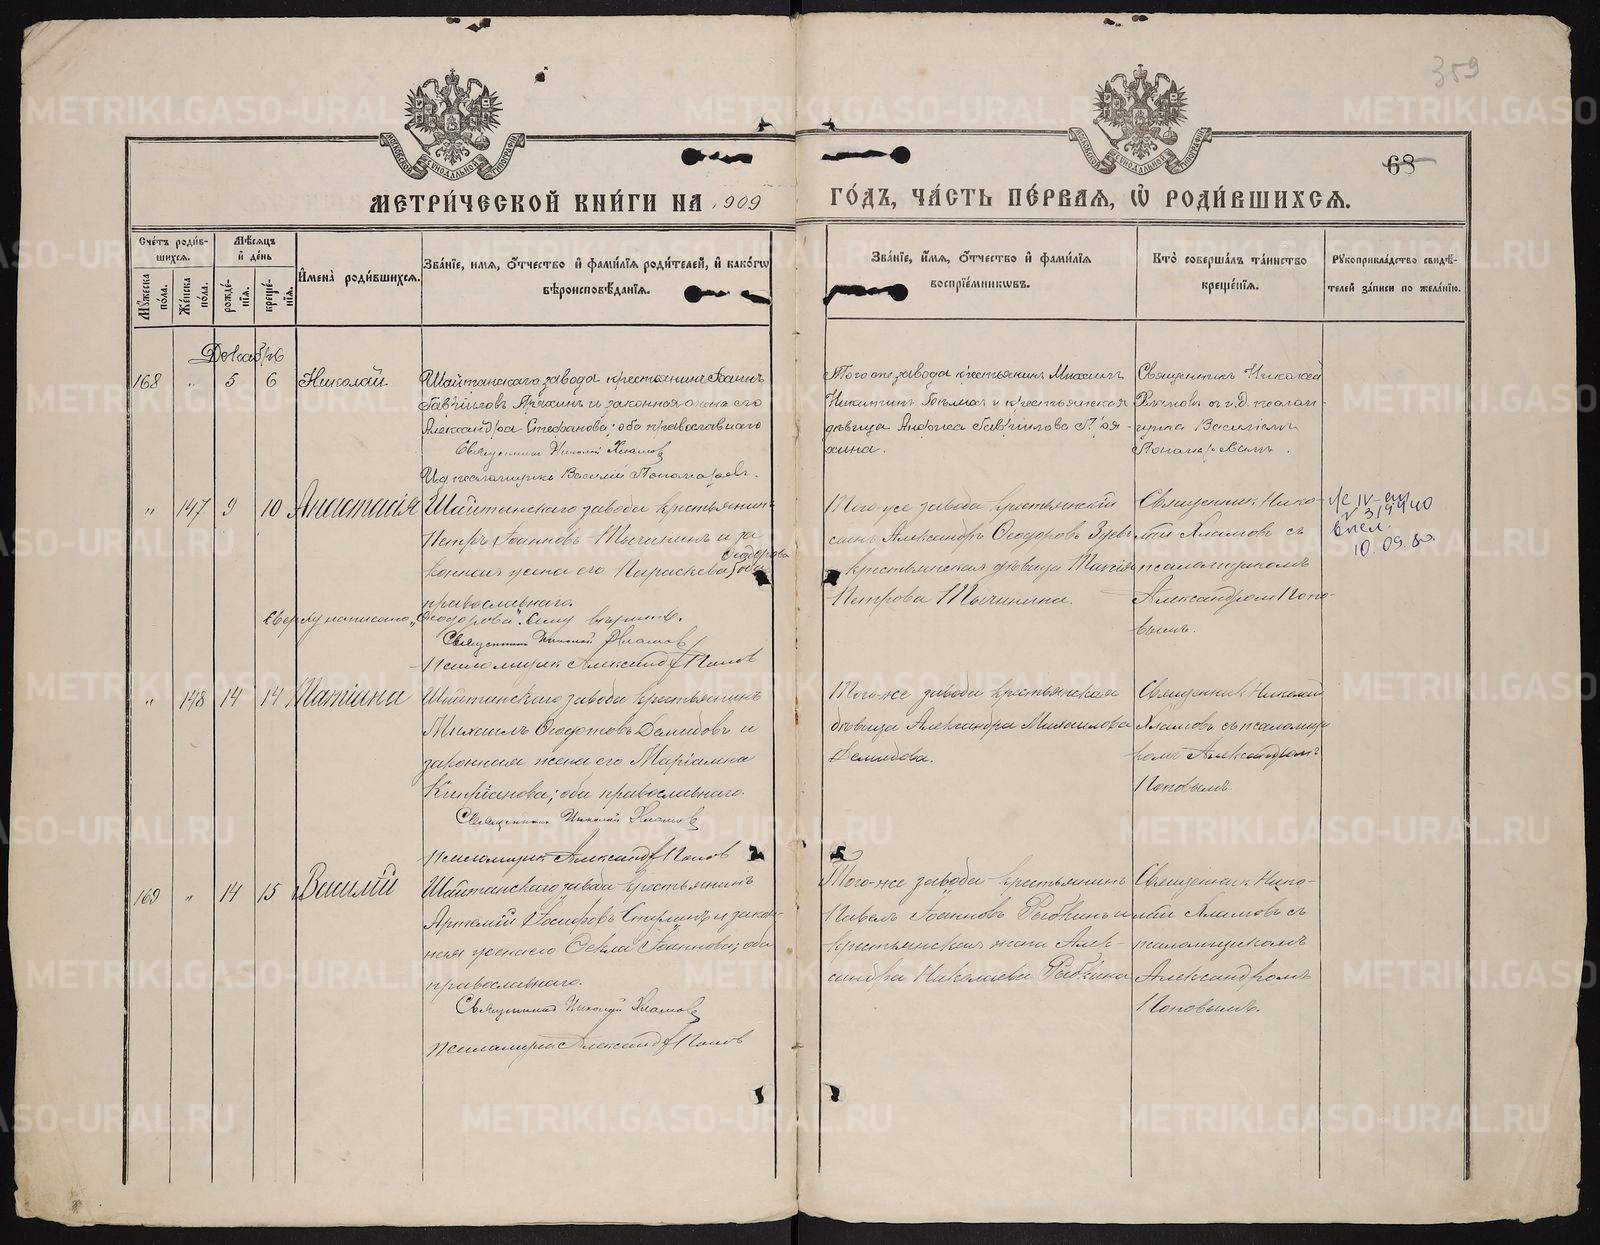 359
68
МЕТРИ́ЧЕСКОЙ КНИ́ГИ НА 1909 ГО́ДЪ, ЧА́СТЬ ПЕ́РВАЯ, Ѡ҆ РОДИ́ВШИХСЯ.
Сче́тъ роди́вшихся.
Мѣ́сяцъ и҆ де́нь
И҆мена̀ роди́вшихся.
Зва́нїе, имя, о҆́тчество и҆ фами́лїя роди́телей, и҆ како́гѡ вѣроисповѣ́данїя.
Зва́нїе, и҆́мя, о҆́тчество и҆ фами́лїя воспрїе́мникѡвъ.
Кто̀ соверша́лъ та́инство креще́нїя.
Рꙋкоприкла́дство свидѣ́телей за́писи по жела́нїю.
Мꙋ́жеска по́ла.
Же́нска по́ла.
рожде́нїя.
креще́нїя.
Декабрь
168 " 5 6 Николай
Шайтанскаго завода крестьянинъ Іоаннъ
Гавріиловъ Пряхинъ и законная жена его
Александра Стефанова; оба православнаго
Священникъ Николай Хламовъ
И.д. псаломщика Василій Пономаревъ.
Того же завода крестьянинъ Михаилъ
Никитинъ и крестьянская
дѣвица Гавріилова Пря-
хина.
Священникъ Николай
Хламовъ съ и.д. псалом-
щика Василіемъ
Пономаревымъ.
" 147 9 10 Анастасія
Шайтанскаго завода крестьянинъ
Петръ Іоанновъ Тычининъ и за-
конная жена его Параскева Ѳеодорова оба
православнаго.
Сверху написано „Ѳеодорова". Сему вѣрить.
Священникъ Николай Хламовъ
Псаломщикъ Александръ Поповъ
Того-же завода крестьянскій
сынъ Александръ Ѳеодоровъ Зуевъ
и крестьянская дѣвица Таисія
Петрова Тычинина.
Священник Нико-
лай Хламовъ съ
псаломщикомъ
Александромъ Попо-
вымъ.
319940
10.09.80
" 148 14 14 Татіана
Шайтанскаго завода крестьянинъ
Михаилъ Ѳеодотовъ Демидовъ и
законная жена его Маріамна
Кипріанова; оба православнаго.
Священникъ Николай Хламовъ
Псаломщикъ Александръ Поповъ
Того-же завода крестьянская
дѣвица Александра Михаилова
Демидова.
Священник Николай
Хламовъ съ псаломщи-
комъ Александромъ
Поповымъ.
169 " 14 15 Василій
Шайтанскаго завода крестьянинъ
Артемій Іосифовъ и закон-
ная жена его Ѳекла Іоаннова; оба
православнаго.
Священникъ Николай Хламовъ
Псаломщикъ Александръ Поповъ
Того-же завода крестьянинъ
Павелъ Іоанновъ Рыбкинъ и
крестьянская жена Алек-
сандра Николаева Рыбкина
Священник Нико-
лай Хламовъ съ
псаломщикомъ
Александромъ
Поповымъ.
METRIKI.GASO-URAL.RU